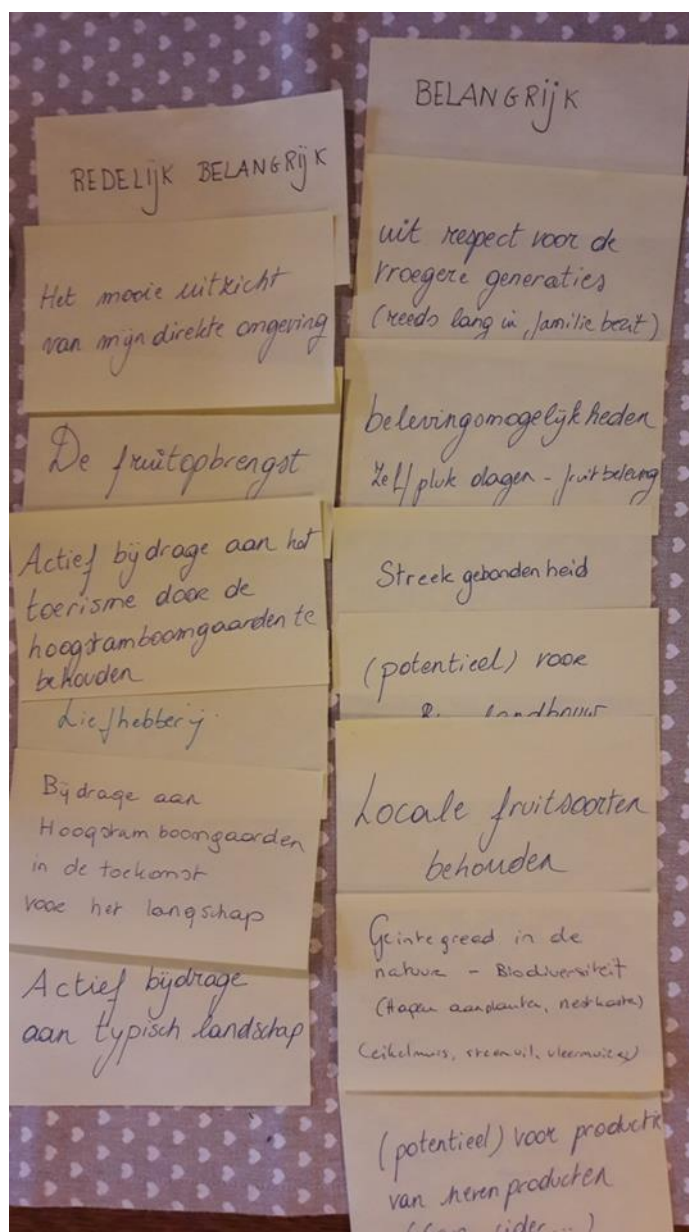 REDELIJK BELANGRIJK
Het mooie uitzicht
van mijn direkte omgeving
De fruitopbrengst
Actief bijdrage aan het
toerisme door de
hoogstamboomgaarden te
behouden
Liefhebberij
Bijdrage aan
Hoogstam boomgaarden
in de toekomst
voor het langschap
Actief bijdrage
aan typisch landschap
BELANGRIJK
uit respect voor de
vroegere generaties
(reeds lang in familie bezit)
belevingomogelijkheden
Zelf pluk dagen - fruitbeleving
Streekgebondenheid
(potentieel) voor
landbouw
Locale fruitsoorten
behouden
Geintegreed in de
natuur - Biodiversiteit
(Hagen aanplanten, nestkasten)
(eikelmuis, steenuil, vleermuizen)
(potentieel) voor productie
van producten